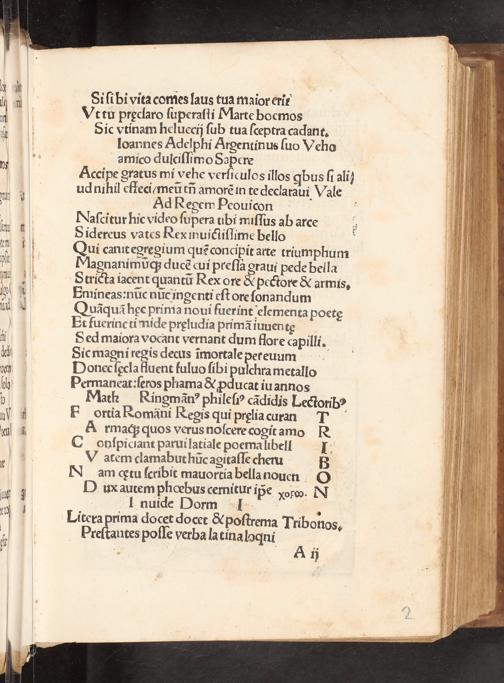 Si si bi vita comes laus tua maior erit
Vt tu pręclaro superasti Marte boemos
Sic vtinam heluecij sub tua sceptra cadant.
Ioannes Adelphi Argentinus suo Veho
amico dulcissimo Sapere
Accipe gratus mi vehe versiculos illos qbus si ali/
ud nihil effeci/meū tñ amorē in te declaraui Vale
Ad Regem Peouicon
Nascitur hic video supera tibi missus ab arce
Sidereus vates Rex inuictissime bello
Qui canit egregium quē concipit arte triumphum
Magnanimūq; ducē cui pressa graui pede bella
Stricta iacent quantū Rex ore & pectore & armis.
Emineas: nūc nūc ingenti est ore sonandum
Quāquā hęc prima noui fuerint elementa poetę
Et fuerinc ti mide pręludia primā iuuentę
Sed maiora vocant vernant dum flore capilli.
Sic magni regis decus īmortale per euum
Donec sęcla fluent fuluo sibi pulchra metallo
Permaneat: seros phama & pducat iu annos
Math Ringmanꝰ philesiꝰ cādidis Lectoribꝰ
F ortia Romāni Regis qui pręlia curan T
A rmaq; quos verus noscere cogit amo R
C onspiciant parui latiale poema libell I
V atem clamabut hūc agitasse cheru B
N am cętu scribit mauortia bella nouen O
D ux autem phoebus cernitur ip̄e χοροω. N
I nuide Dorm I
Litera prima docet docet & postrema Tribonos.
Prestantes posse verba latina loqni
A ij
2